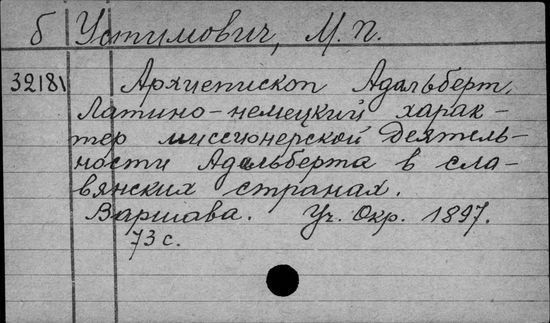 б Устимович, М. П.
32181 Архиепископ Адальберт.
Латино-немецкий харак-
тер миссионерской деятель-
ности Адальберта в сла-
вянских странах.
Варшава. Уч. Окр. 1897.
73 с.